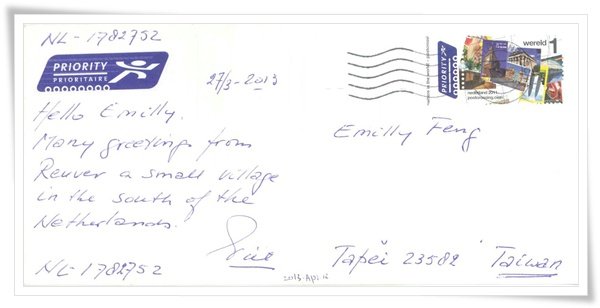 NL-1782752
PRIORITY
PRIORITAIRE
27/3-2013
Hello Emilly.
Many greetings from
Reuver a small village
in the south of the
Netherlands.
NL-1782752
PRIORITY
wereld 1
nederland 2011
postcrossing.com
Emilly Feng
Tapëi 23582
Taiwan
2013.Apr.12